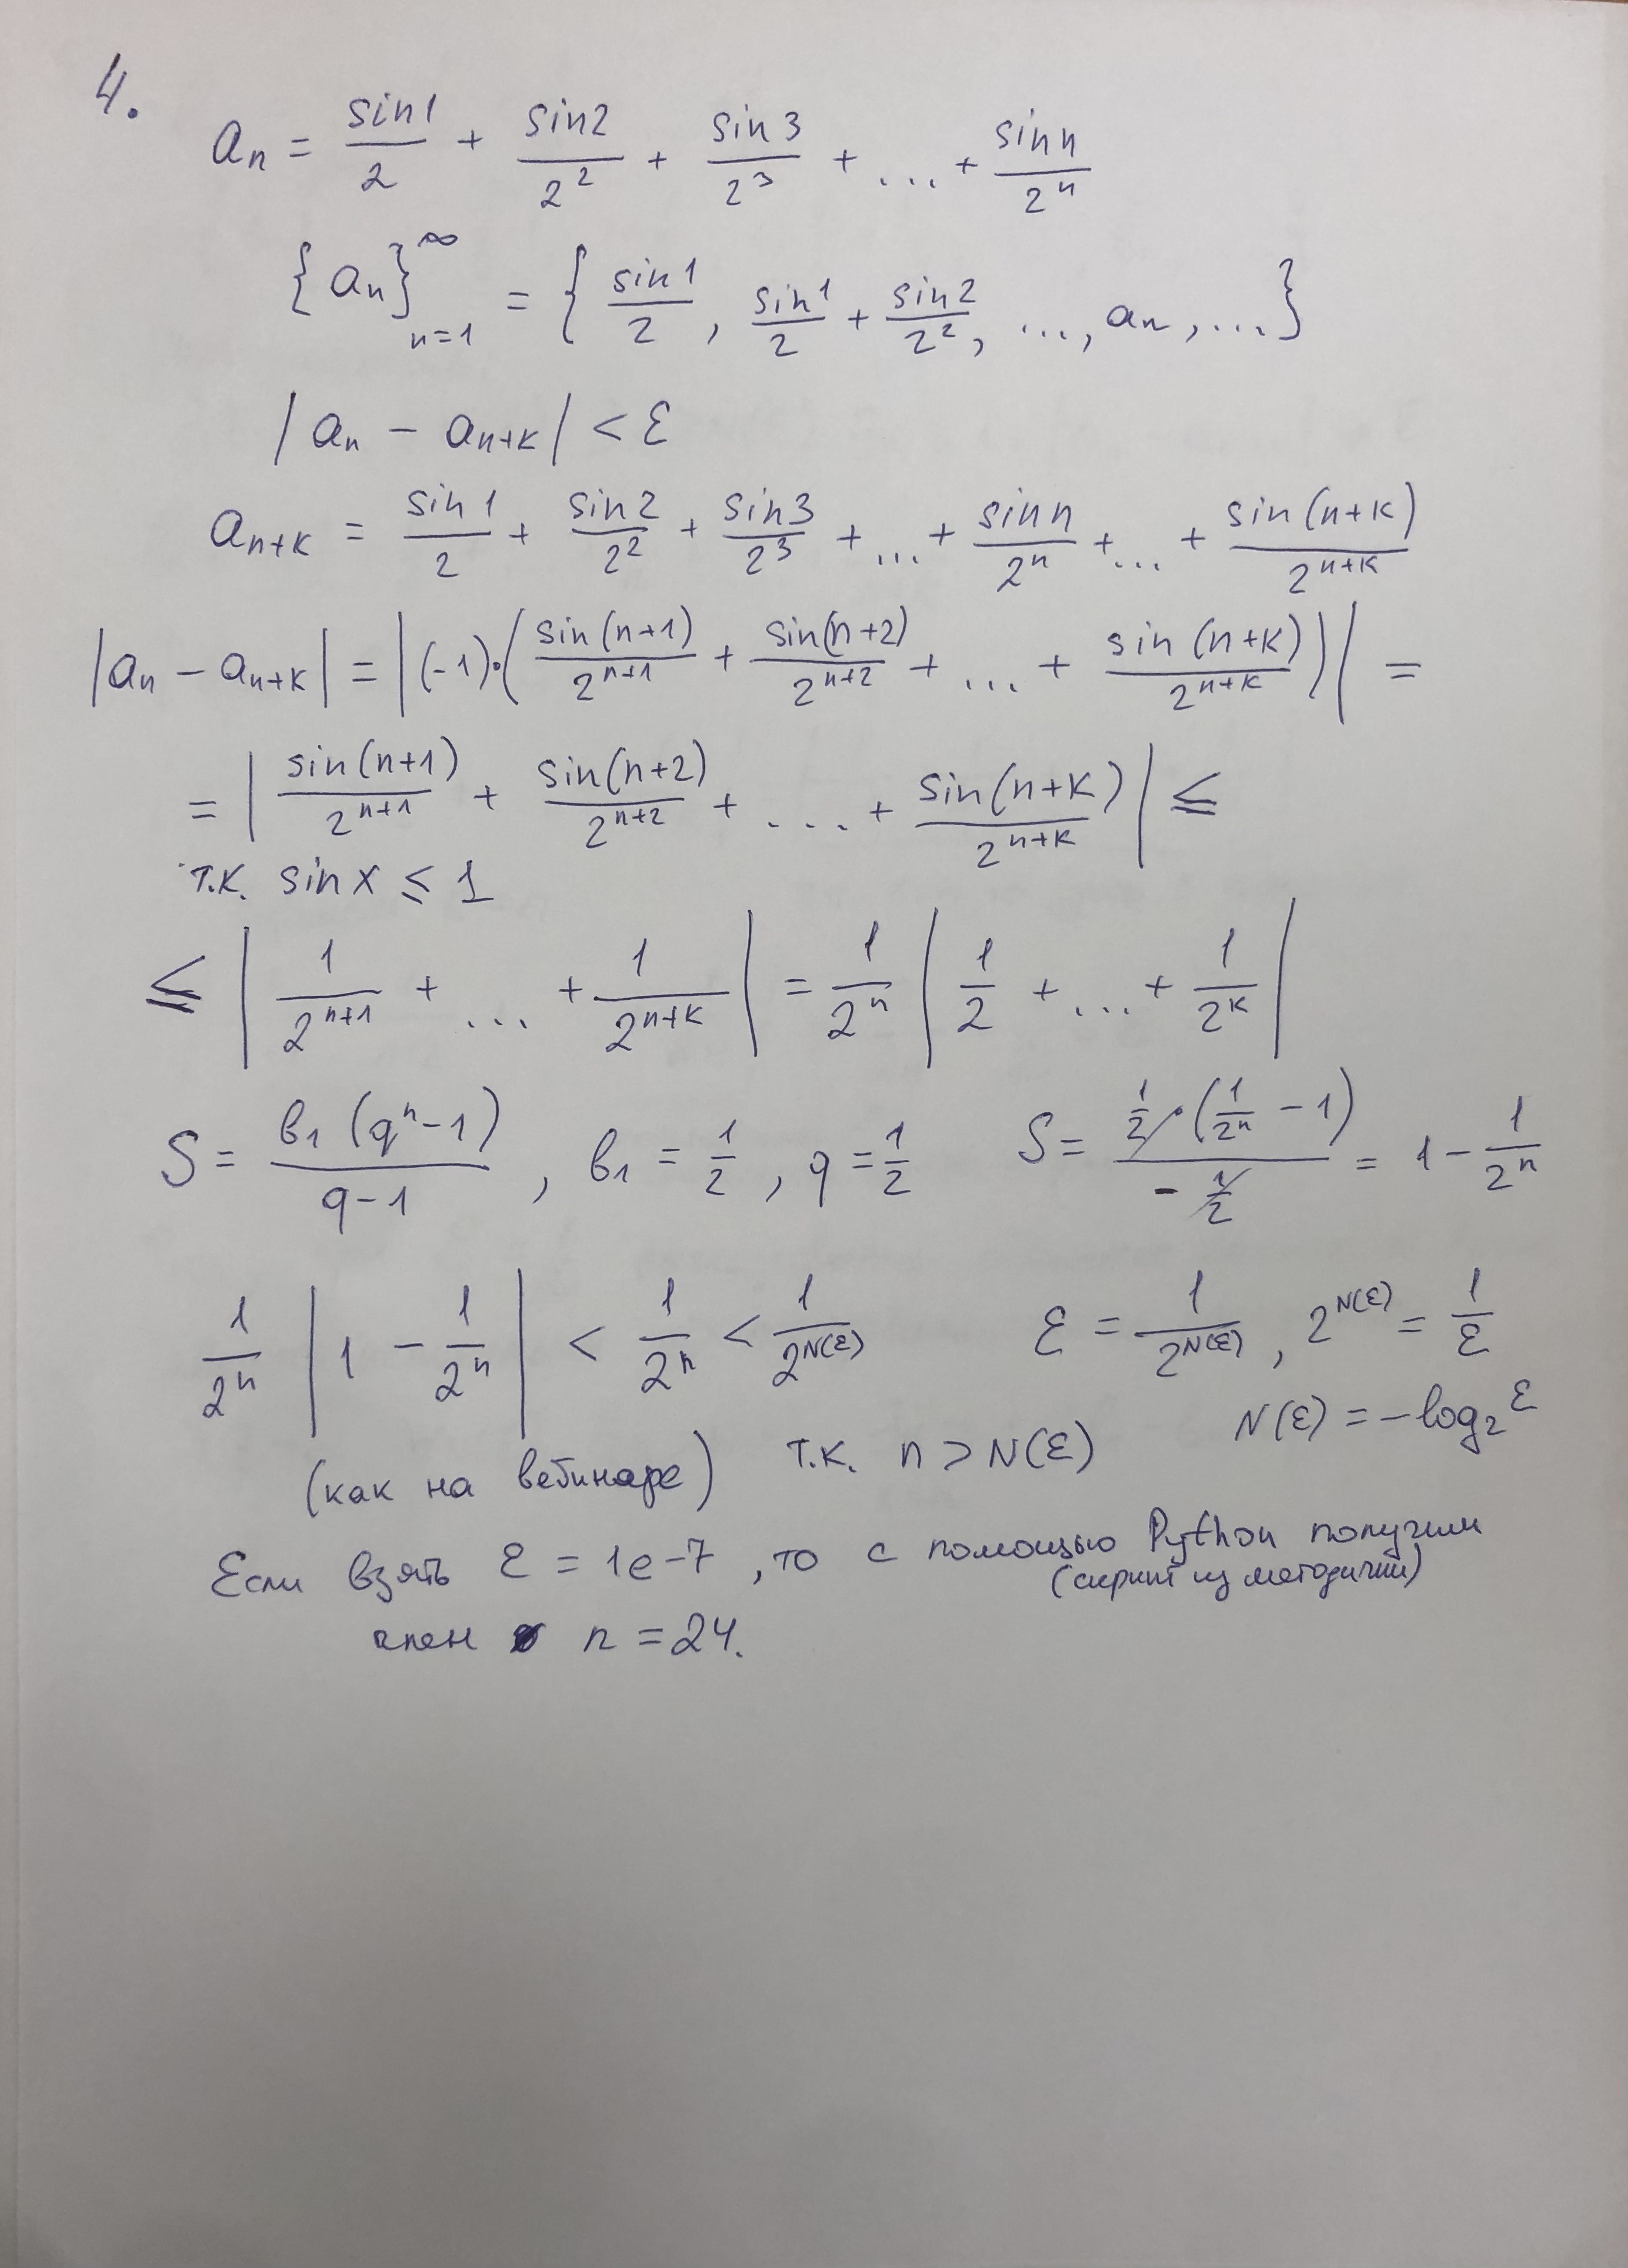 4.
aₙ = sin1/2 + sin2/2² + sin3/2³ + ... + sin n/2ⁿ
{aₙ}^∞_{n=1} = { sin1/2, sin1/2 + sin2/2², ..., aₙ, ... }
|aₙ - aₙ₊ₖ| < ε
aₙ₊ₖ = sin1/2 + sin2/2² + sin3/2³ + ... + sin n/2ⁿ + ... + sin(n+k)/2ⁿ⁺ᵏ
|aₙ - aₙ₊ₖ| = |(-1)·(sin(n+1)/2ⁿ⁺¹ + sin(n+2)/2ⁿ⁺² + ... + sin(n+k)/2ⁿ⁺ᵏ)| =
= |sin(n+1)/2ⁿ⁺¹ + sin(n+2)/2ⁿ⁺² + ... + sin(n+k)/2ⁿ⁺ᵏ| ≤
т.к. sin x ≤ 1
≤ |1/2ⁿ⁺¹ + ... + 1/2ⁿ⁺ᵏ| = 1/2ⁿ |1/2 + ... + 1/2ᵏ|
S = b₁(qⁿ-1)/(q-1), b₁ = 1/2, q = 1/2 S = 1/2·(1/2ⁿ - 1)/(-1/2) = 1 - 1/2ⁿ
1/2ⁿ |1 - 1/2ⁿ| < 1/2ⁿ < 1/2^{N(ε)} ε = 1/2^{N(ε)}, 2^{N(ε)} = 1/ε
(как на вебинаре) т.к. n > N(ε) N(ε) = -log₂ ε
Если взять ε = 1e-7, то с помощью Python получим
(скрипт из методички)
член n = 24.